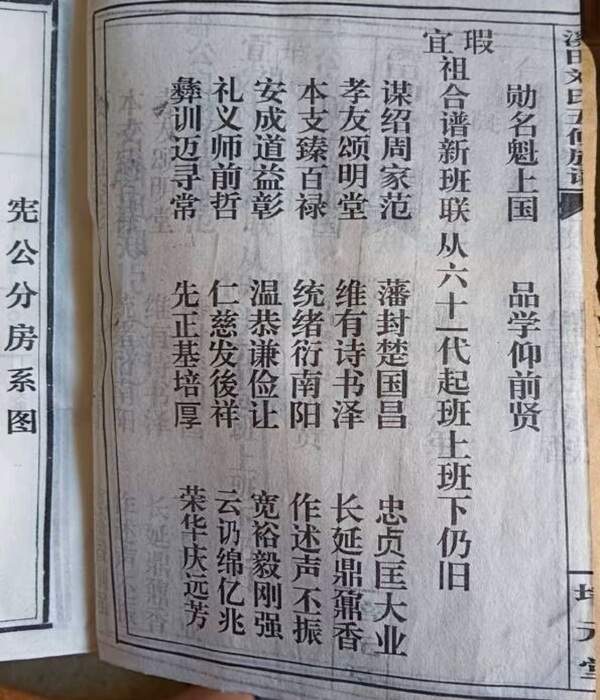 氏五修族谱
元堂
勋名魁上国 品学仰前贤
瑕宜祖合谱新班联从六十一代起班上班下仍旧
谋绍周家范 藩封楚国昌 忠贞匡大业
孝友颂明堂 维有诗书泽 长延鼎鼐香
本支臻百禄 统绪衍南阳 作述声丕振
安成道益彰 温恭谦俭让 宽裕毅刚强
礼义师前哲 仁慈发後祥 云礽绵亿兆
彝训迈寻常 先正基培厚 荣华庆远芳
宪公分房系图